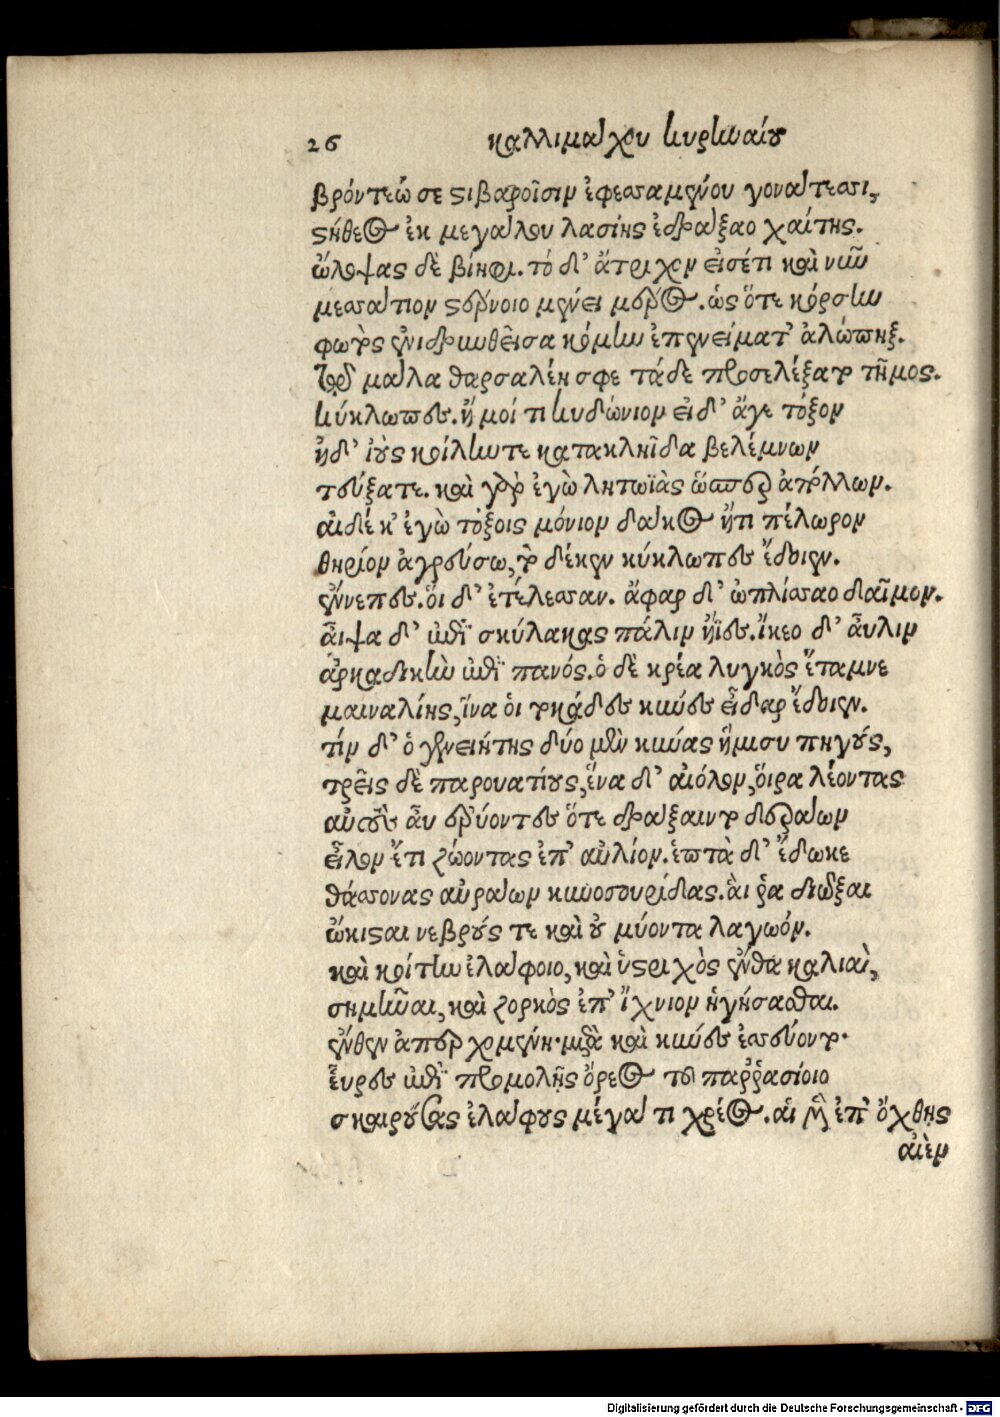 26 καλλιμάχου κυρηναίου
βρόντεώ σε στιβαροῖσιν ἐφεσσαμένου γονάτεσσι,
στήθεος ἐκ μεγάλου λασίης ἐδράξαο χαίτης.
ὤλοψας δὲ βίηφι. τό δ' ἄτριχον εἰσέτι καὶ νῦν
μεσσάτιον στέρνοιο μένει μέρος. ὡς ὅτε κόρσην
φωτὸς ἐνιδρυνθεῖσα κόμην ἐπενείματ' ἀλώπηξ.
τῷ μάλα θαρσαλέη σφε τάδε προσελέξαο τῆμος.
κύκλωπες. ἤ μοί τι κυδώνιον εἰ δ' ἄγε τόξον
ἠδ' ἰοὺς κοίλην τε κατακληῖδα βελέμνων
τεύξατε. καὶ γὰρ ἐγὼ λητωϊὰς ὥσπερ ἀπόλλων.
αἰ δέ κ' ἐγὼ τόξοις μόνιον δάκος ἤ τι πέλωρον
θηρίον ἀγρεύσω, τὸ δέ κεν κύκλωπες ἔδοιεν.
ἔννεπες. οἱ δ' ἐτέλεσσαν. ἄφαρ δ' ὡπλίσσαο δαῖμον.
αἶψα δ' ἐπὶ σκύλακας πάλιν ἤϊες. ἵκεο δ' αὖλιν
ἀρκαδικὴν ἐπὶ πανός. ὁ δὲ κρέα λυγκὸς ἔταμνε
μαιναλίης, ἵνα οἱ τοκάδες κύνες εἶδαρ ἔδοιεν.
τίν δ' ὁ γενειήτης δύο μὲν κύνας ἥμισυ πηγούς,
τρεῖς δὲ παρουατίους, ἕνα δ' αἰόλον, οἵρα λέοντας
αὐτοὺς αὖ ἐρύοντες ὅτε δράξαιντο δεράων
εἷλον ἔτι ζώοντας ἐπ' αὐλίον. ἑπτὰ δ' ἔδωκε
θάσσονας αὐράων κυνοσουρίδας. αἵ ῥα διῶξαι
ὤκισται νεβρούς τε καὶ οὐ μύοντα λαγωόν.
καὶ κοίτην ἐλάφοιο, καὶ ὕστριχὸς ἔνθα καλιαὶ,
σημῆναι, καὶ ζορκὸς ἐπ' ἴχνιον ἡγήσασθαι.
ἔνθεν ἀπερχομένη· μετὰ καὶ κύνες ἐσσεύοντο·
εὗρες ἐπὶ προμολῇς ὄρεος τοῦ παῤῥασίοιο
σκαιρούσας ἐλάφους μέγα τι χρέος. αἱ μὲν ἐπ' ὄχθης
αἰὲν
Digitalisierung gefördert durch die Deutsche Forschungsgemeinschaft - DFG